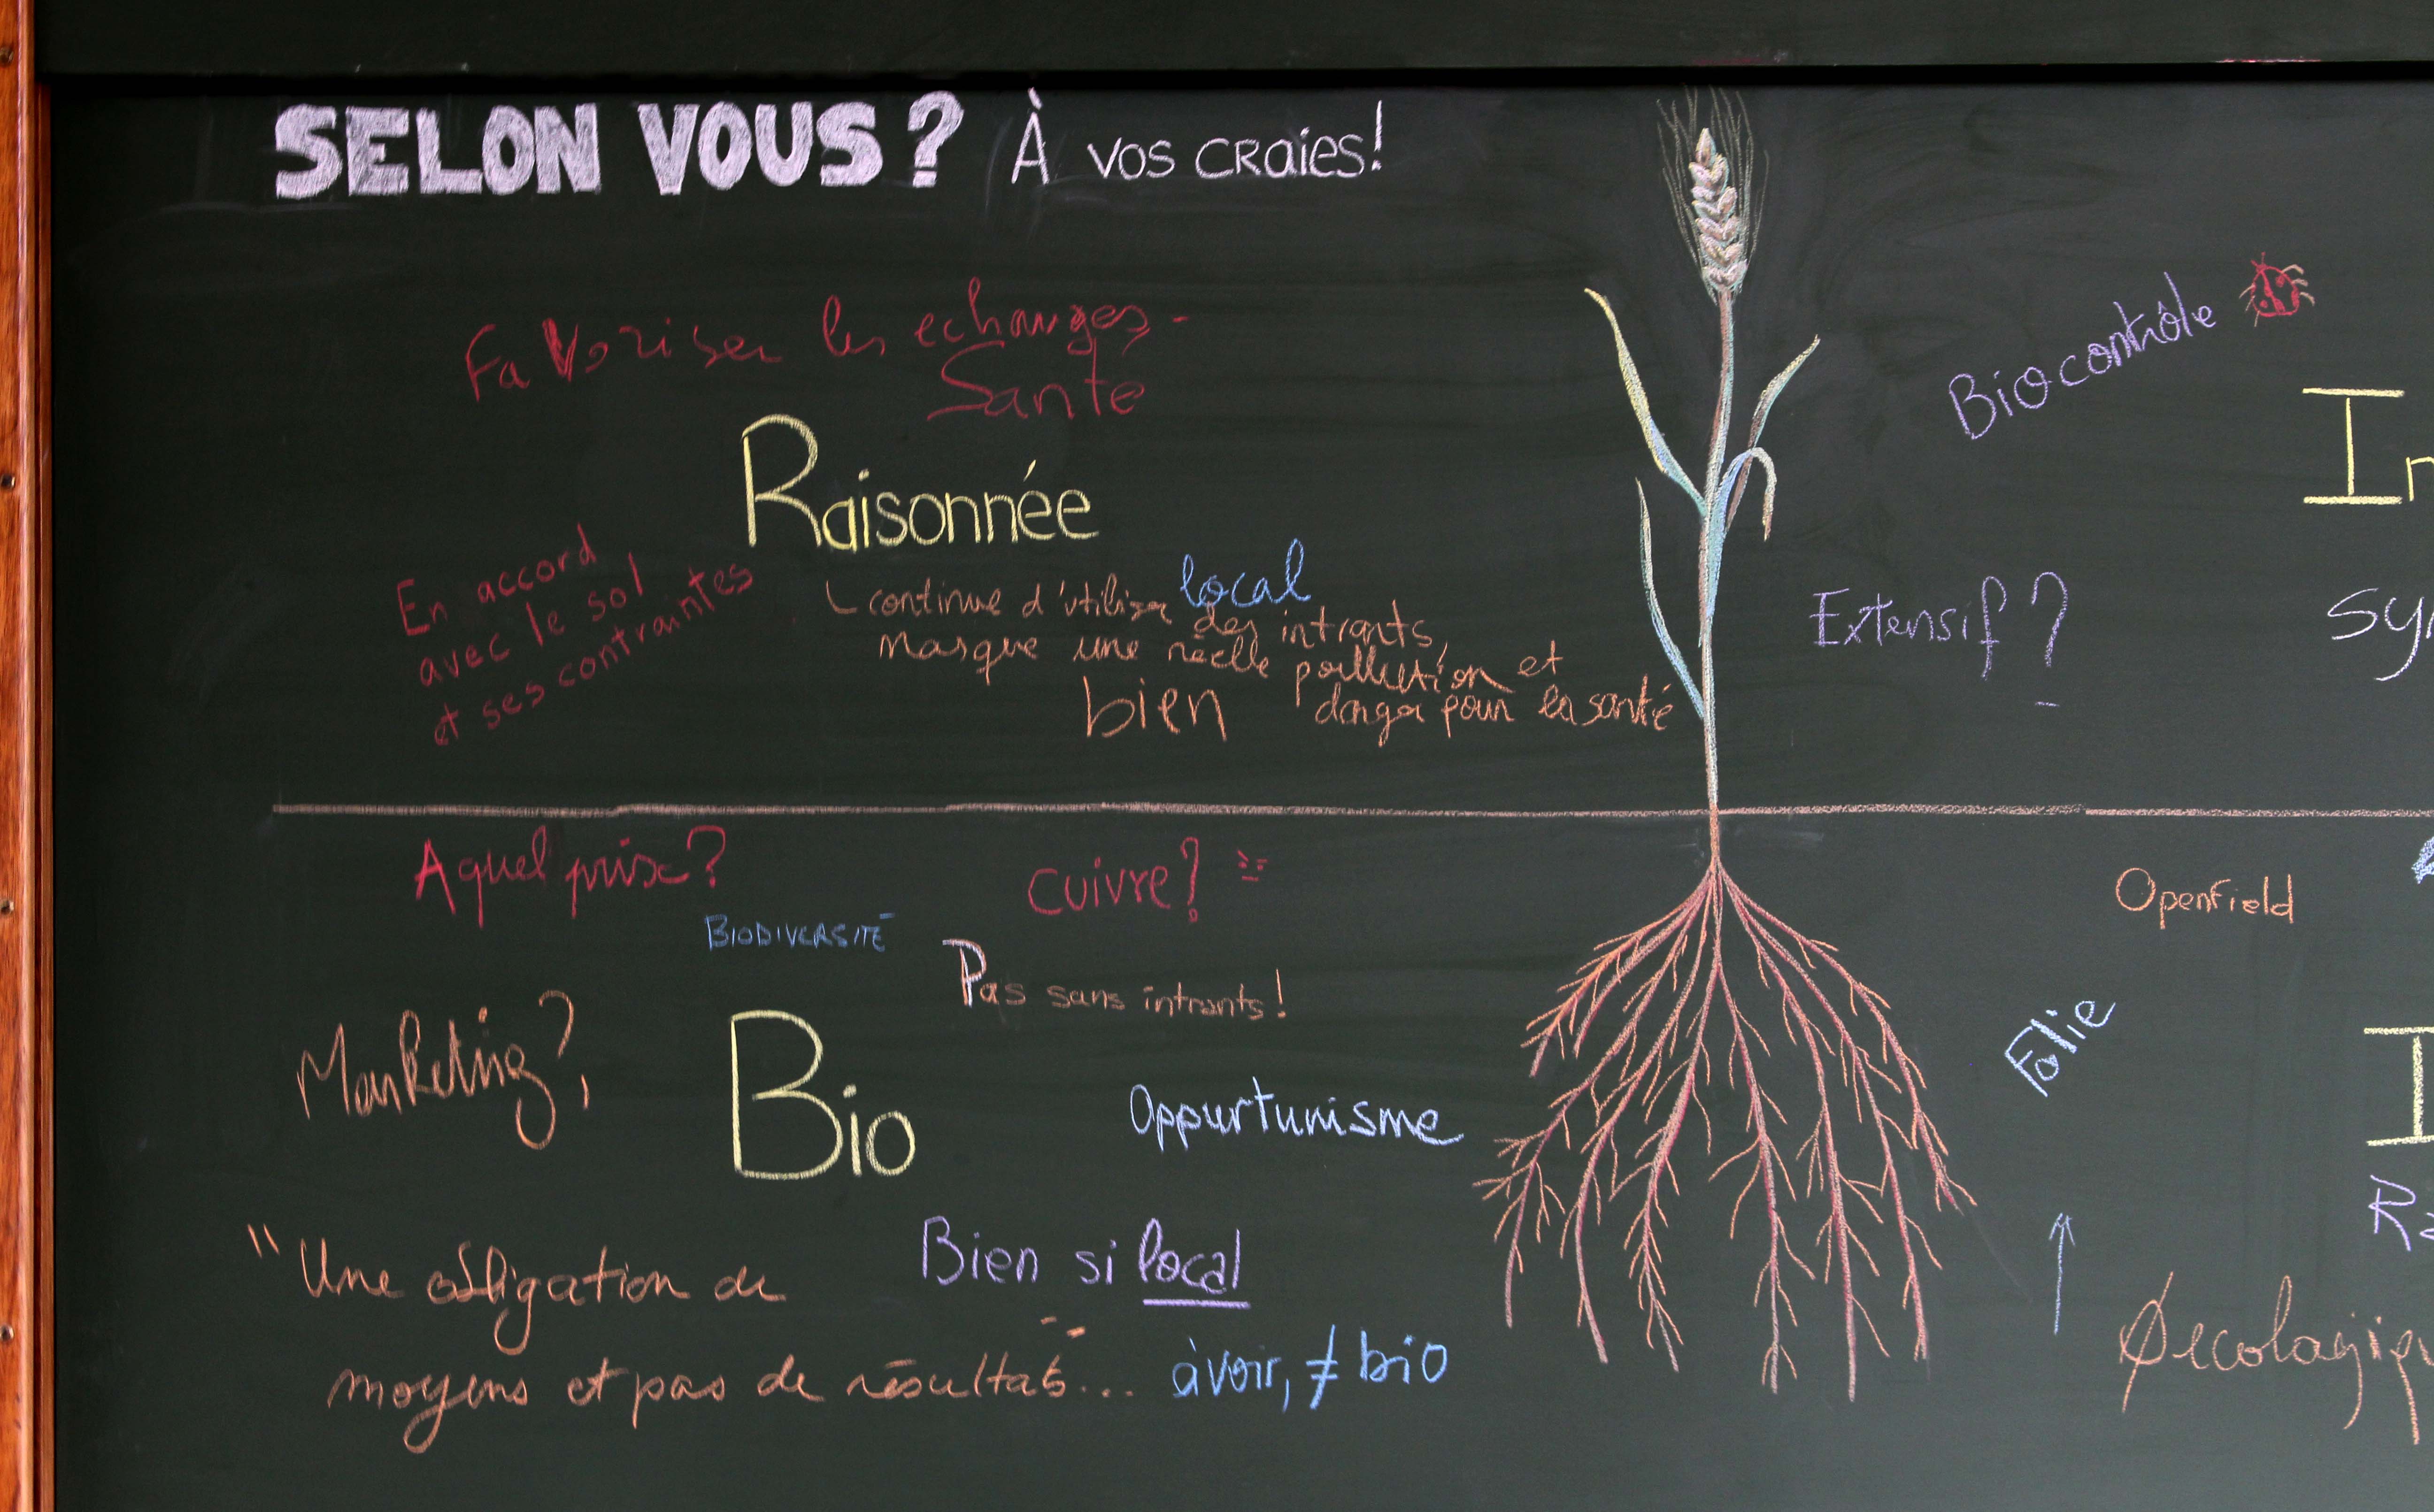 SELON VOUS ? À VOS CRAIES!
Favoriser les echanges -
Santé
Raisonnée
En accord
avec le sol
et ses contraintes
local
continue d'utiliser des intrants,
masque une réelle pollution et
danger pour la santé
bien
Biocontrôle
In
Extensif ?
Sy
A quel prix ?
Cuivre ?
BIODIVERSITÉ
Pas sans intrants !
Marketing ?
Bio
Oppurtunisme
Bien si local
"Une obligation de
moyens et pas de résultats...
àvoir, ≠ bio
Openfield
Folie
I
Ra
Øecologiqu